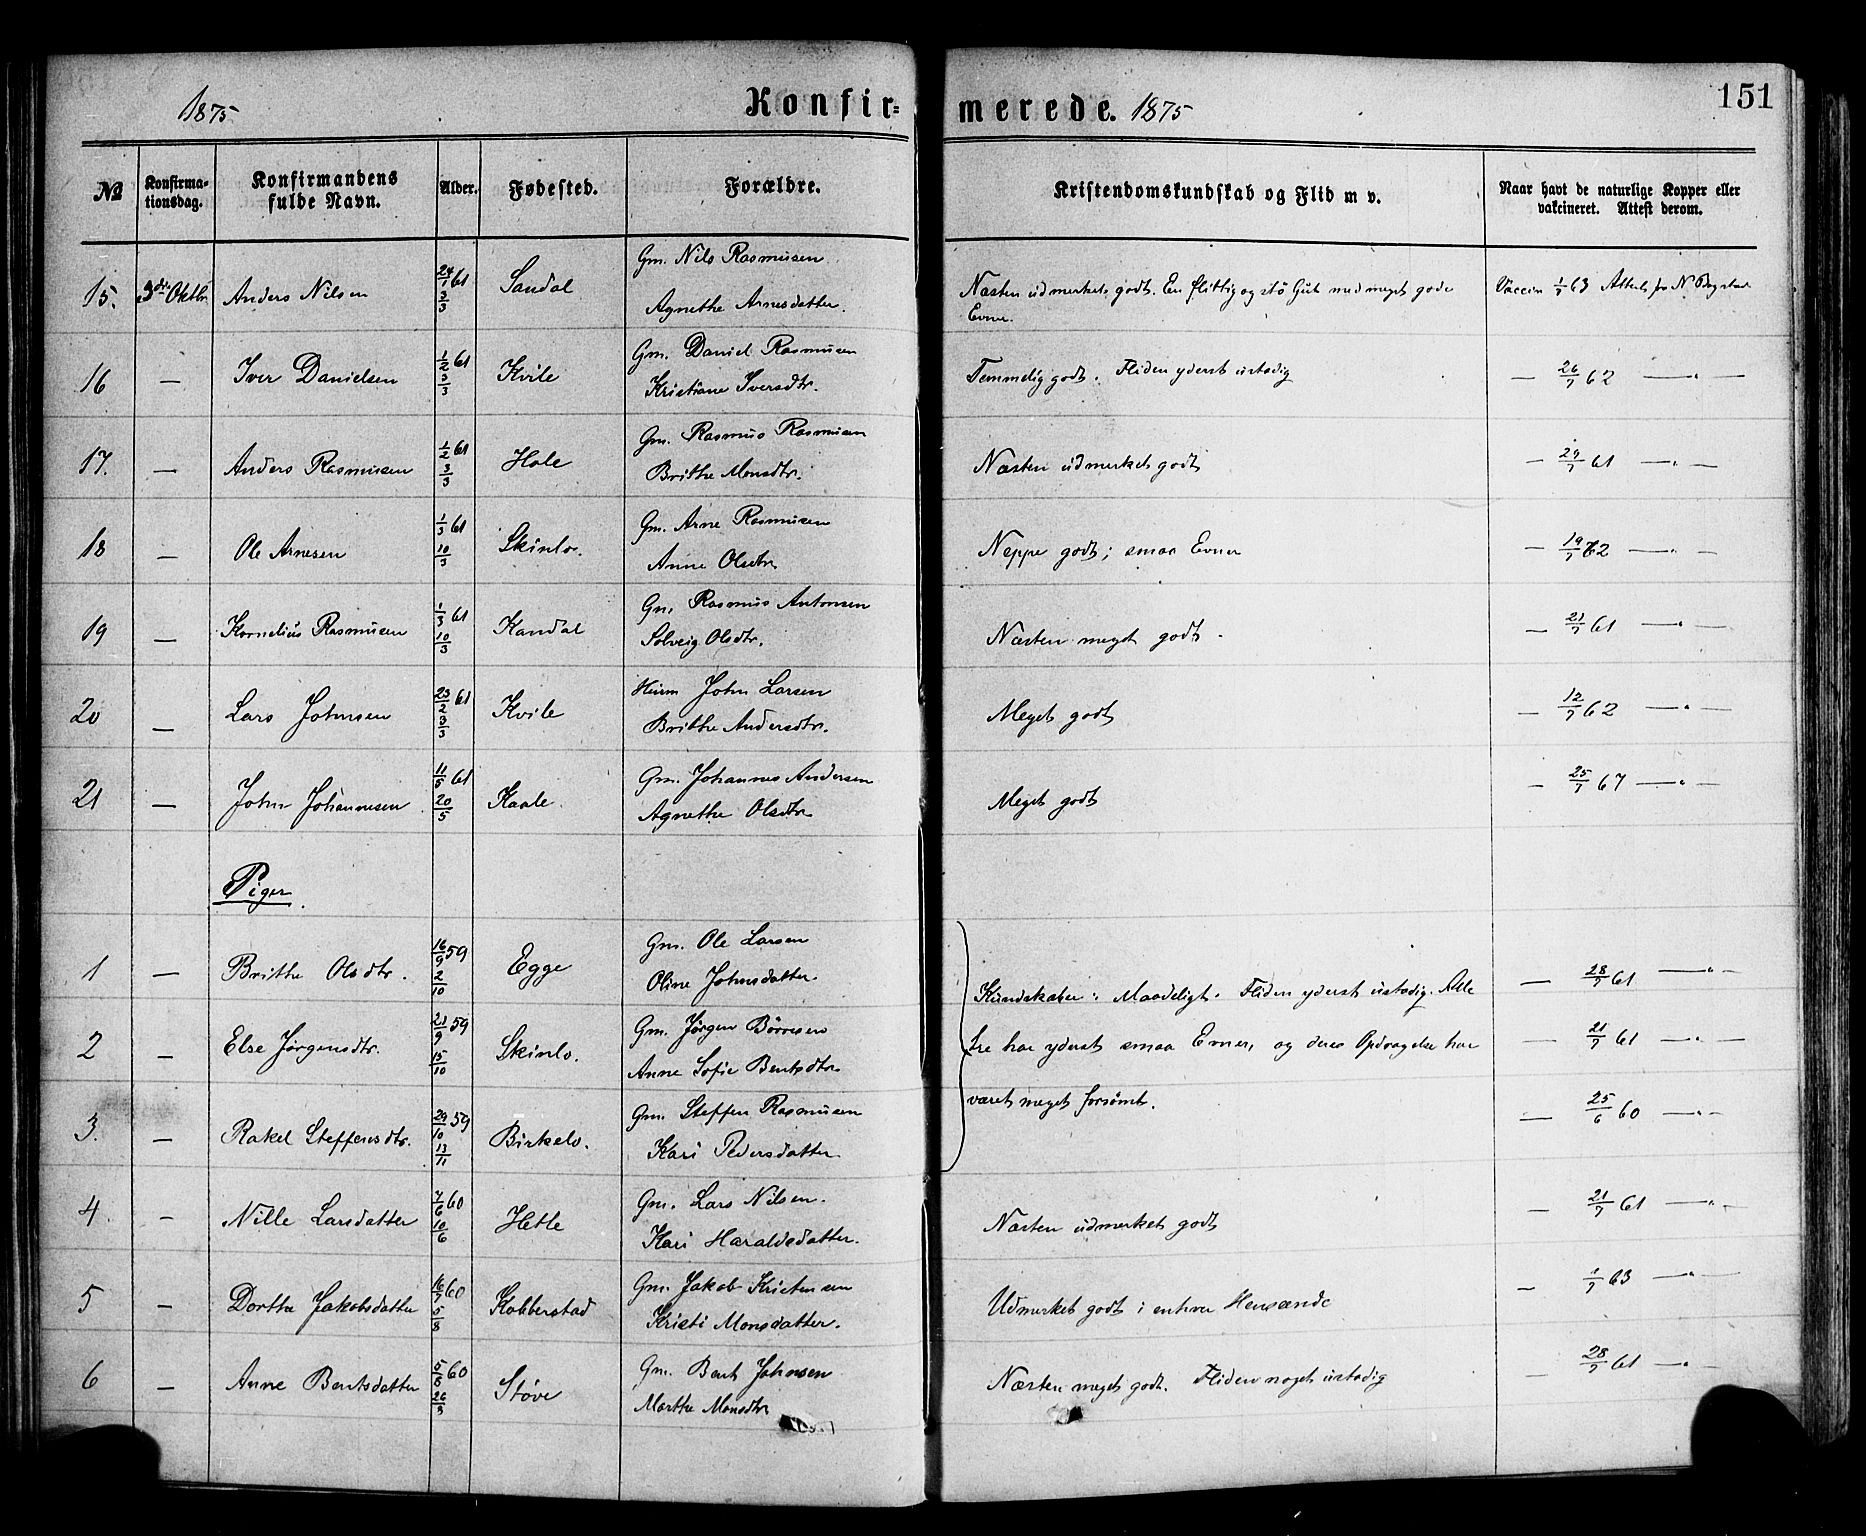 1875 Konfir= merede. 1875 151
№ Konfirma-tionsdag. Konfirmandens fulde Navn. Alder. Fødested. Forældre. Kristendomskundskab og Flid m v. Naar havt de naturlige Kopper eller vakcineret. Attest derom.
15. 3de Oktbr. Anders Nilsen 24/1 61 3/3 Sandal Gm. Nils Rasmusen
Agnethe Arnesdatter. Næsten udmerkets godt. En flittig og stø Gut med meget gode Evner. Vaccin 1/7 63 Attest fr N.
16 — Iver Danielsen 1/2 61 3/3 Kvile Gm. Daniel Rasmusen
Kristiane Iversdtr. Temmelig godt. Fliden yderst ustadig — 26/7 62 —„—
17. — Anders Rasmusen 1/2 61 3/3 Hole Gm. Rasmus Rasmusen
Brithe Monsdtr. Næsten udmerket godt — 29/7 61 —„—
18 — Ole Arnesen 1/3 61 10/3 Skinlo. Gm. Arne Rasmusen
Anne Olsdtr Neppe godt; smaa Evner — 19/7 62 —„—
19 — Kornelius Rasmusen 1/3 61 10/3 Kandal Gm. Rasmus Antonsen
Solveig Olsdtr. Næsten meget godt. — 21/7 61 —„—
20 — Lars Johnsen 23/2 61 3/3 Kvile Huusm John Larsen
Brithe Andersdtr. Meget godt — 12/7 62 —„—
21 — John Johannesen 11/5 61 20/5 Kaale. Gm. Johannes Andersen
Agnethe Olsdtr Meget godt — 25/7 67 —„—
Piger.
1 — Brithe Olsdtr. 16/9 59 2/10 Egge Gm. Ole Larsen
Oline Johnsdatter. Kundskaber: Maadeligt. Fliden yderst ustadig. Alle — 28/7 61 —„—
2 — Else Jørgensdtr. 21/9 59 15/10 Skinlo. Gm. Jørgen Børresen
Anne Sofie Bentsdtr tre har yderst smaa Evner, og deres Opdragelse har — 21/7 61 —„—
3. — Rakel Steffensdtr. 29/10 59 13/11 Birkelo. Gm. Steffen Rasmusen
Kari Pedersdatter været meget forsømt. — 25/6 60 —„—
4. — Nille Larsdatter 7/6 60 10/6 Hetle Gm. Lars Nilsen.
Kari Haraldsdatter. Næsten udmerket godt — 21/7 61 —„—
5 — Dorthe Jakobsdatter 16/7 60 5/8 Kobberstad Gm. Jakob Kristensen
Kristi Monsdatter. Udmerket godt i enhver Henseende — 1/7 63 —„—
6 — Anne Bentsdatter 5/8 60 26/8 Støve Gm. Bent Johnsen
Marthe Monsdtr Næsten meget godt. Fliden noget ustadig — 28/7 61 —„—